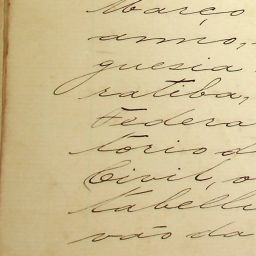 Março
anno,
guesia
ratiba,
Federa
torio d
Civil, o
tabelli
vão da